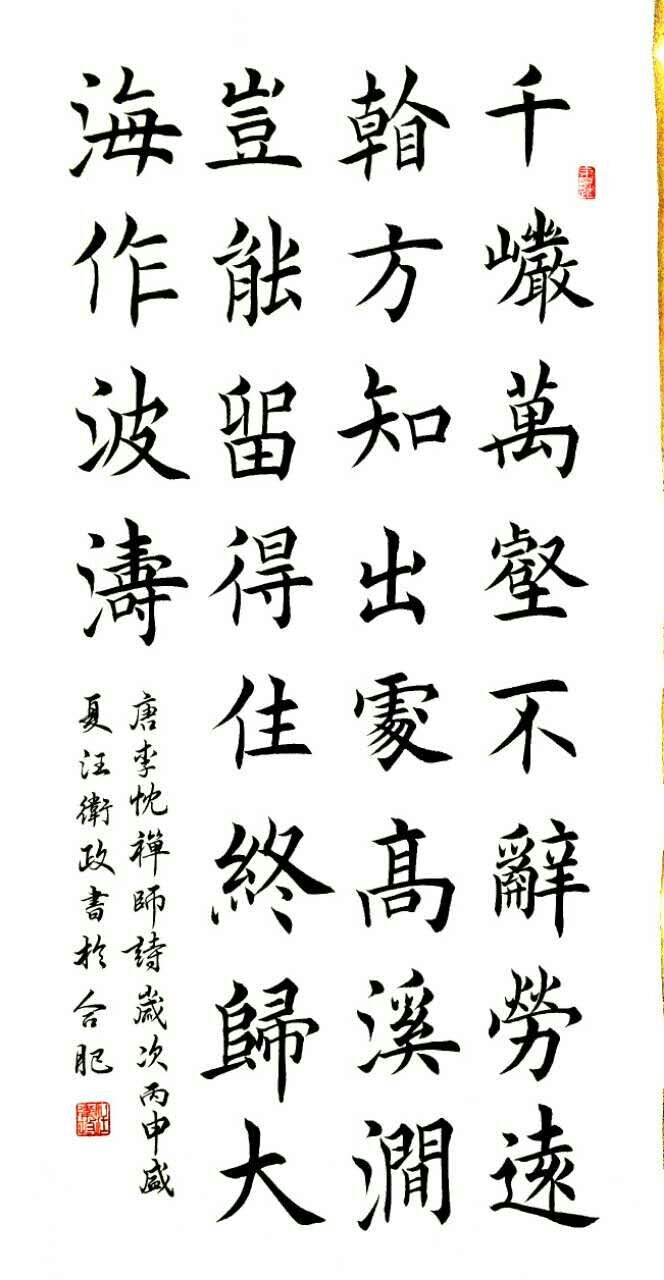 千巗萬壑不辭勞遠
看方知出處髙溪澗
豈能留得住終歸大
海作波濤
唐李忱禪師詩歲次丙申盛
夏汪衛政書於合肥